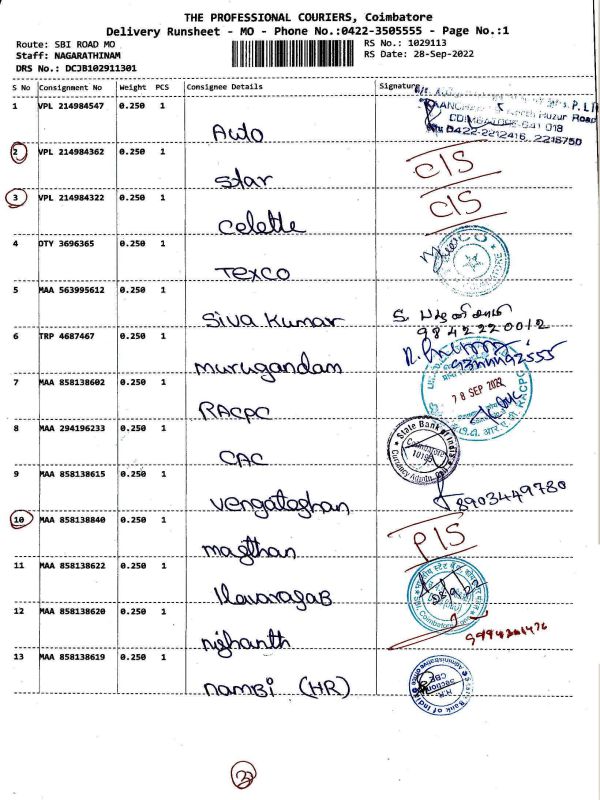 THE PROFESSIONAL COURIERS, Coimbatore
Delivery Runsheet - MO - Phone No.:0422-3505555 - Page No.:1
Route: SBI ROAD MO
RS No.: 1029113
Staff: NAGARATHINAM
RS Date: 28-Sep-2022
DRS No.: DCJB102911301
S No Consignment No Weight PCS Consignee Details Signature
1 VPL 214984547 0.250 1
Auto
P. LTD
Huzur Road
COIMBATORE-641 018
0422-2212416, 2216750
2 VPL 214984362 0.250 1
Star
C/S
3 VPL 214984322 0.250 1
Celette
C/S
4 DTY 3696365 0.250 1
TEXCO
5 MAA 563995612 0.250 1
Siva Kumar
S. பழனிசாமி
9842220012
6 TRP 4687467 0.250 1
murugandam
7 MAA 858138602 0.250 1
RACPC
SEP 2022
RACPC
8 MAA 294196233 0.250 1
CAC
State Bank of India
Coimbatore
Currency Admin.
9 MAA 858138615 0.250 1
Vengateshan
8903449780
10 MAA 858138840 0.250 1
magthan
P/S
11 MAA 858138622 0.250 1
IlavaragaB
12 MAA 858138620 0.250 1
nishanth
13 MAA 858138619 0.250 1
nambi (HR)
State Bank of India
Administrative Office
H.R.
Section
CBE
3